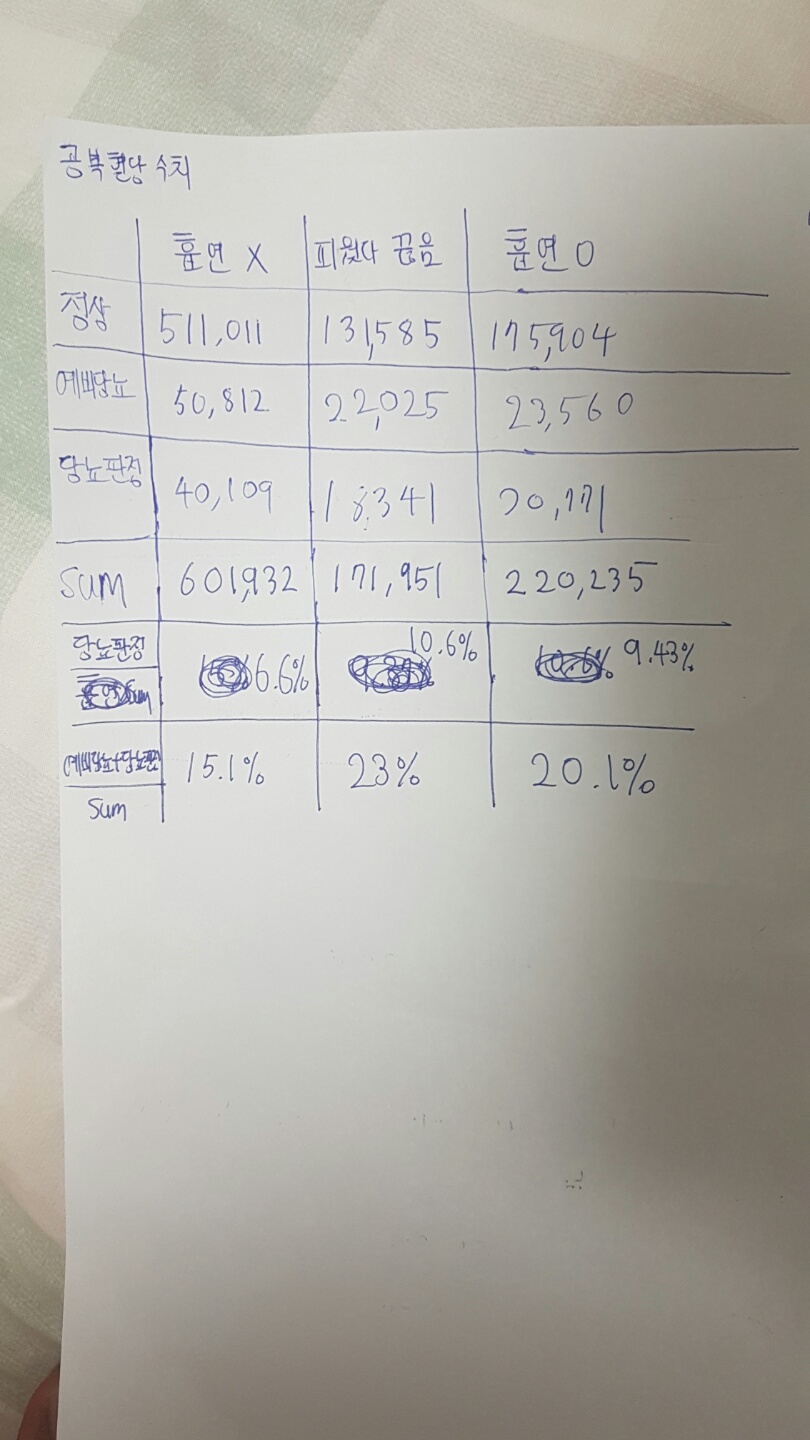 공복혈당 수치
흡연 X 피웠다 끊음 흡연 O
정상 511,011 131,585 175,904
예비당뇨 50,812 22,025 23,560
당뇨판정 40,109 18,341 20,771
Sum 601,932 171,951 220,235
당뇨판정 6.6% 10.6% 9.43%
Sum
예비당뇨+당뇨판정 15.1% 23% 20.1%
Sum